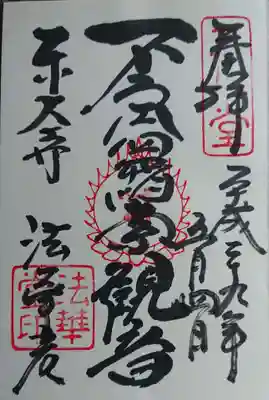 奉拝
平成二九年
五月四日
不空羂索観音
東大寺 法華堂
法華堂印